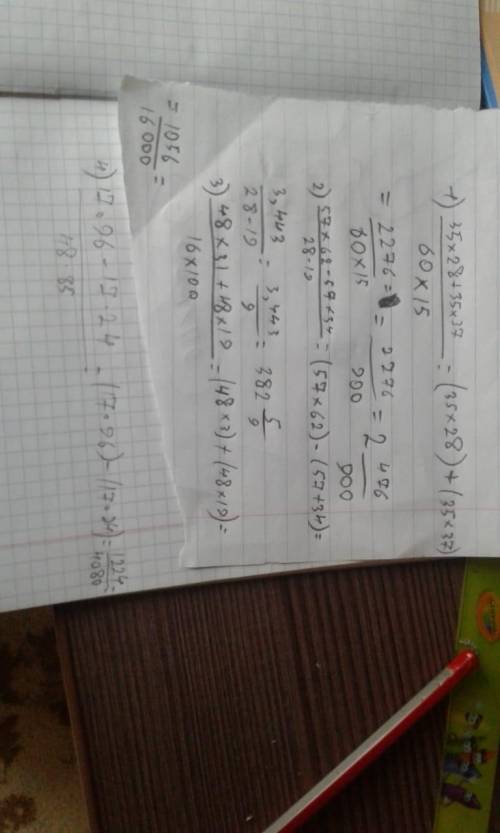 1) 35×28+35×37 / 60×15 = (35×28)+(35×37)
= 2276 / 60×15 = = 2276 / 900 = 2 476/900
2) 57×62-57×34 / 28-19 = (57×62)-(57+34)=
3,443 / 28-19 = 3,443 / 9 = 382 5/9
3) 48×31+48×19 / 16×100 = (48×3)+(48×19)=
= 1056 / 16 000 =
4) 17·96-17 24 / 48 85 = (17·96)-(17·24)= 1224 / 4080 =